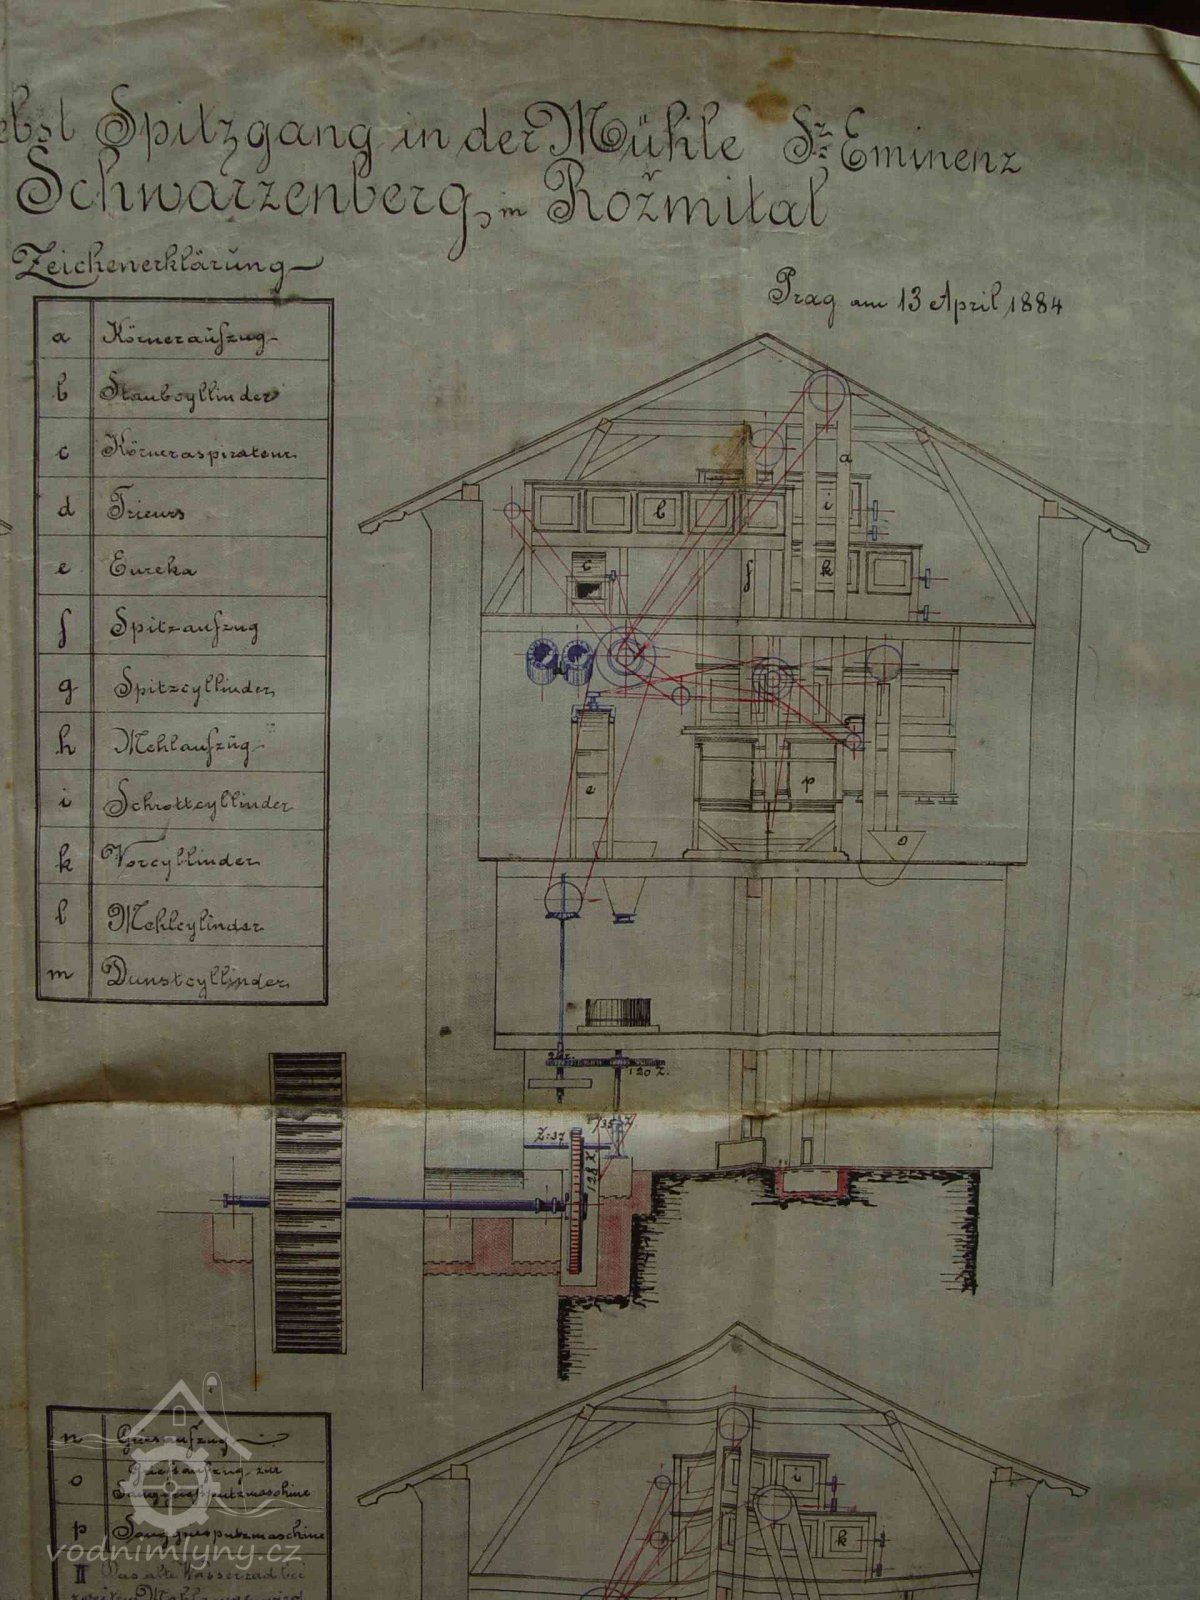 ebst Spitzgang in der Mühle Sr Eminenz
Schwarzenberg, in Rožmital
Zeichenerklärung
Prag am 13 April 1884
a Körneraufzug
b Staubcyllinder
c Körneraspirateur
d Trieurs
e Eureka
f Spitzaufzug
g Spitzcyllinder
h Mehlaufzug
i Schrottcyllinder
k Vorcyllinder
l Mehlcylinder
m Dunstcyllinder
a
b
i
c
f
k
e
p
o
120 Z.
Z:37
128 Z
n Griesaufzug
o Griesaufzug zur
Sauggriesputzmaschine
p Sauggriesputzmaschine
II Das alte Wasserrad bei
i
k
vodnimlyny.cz